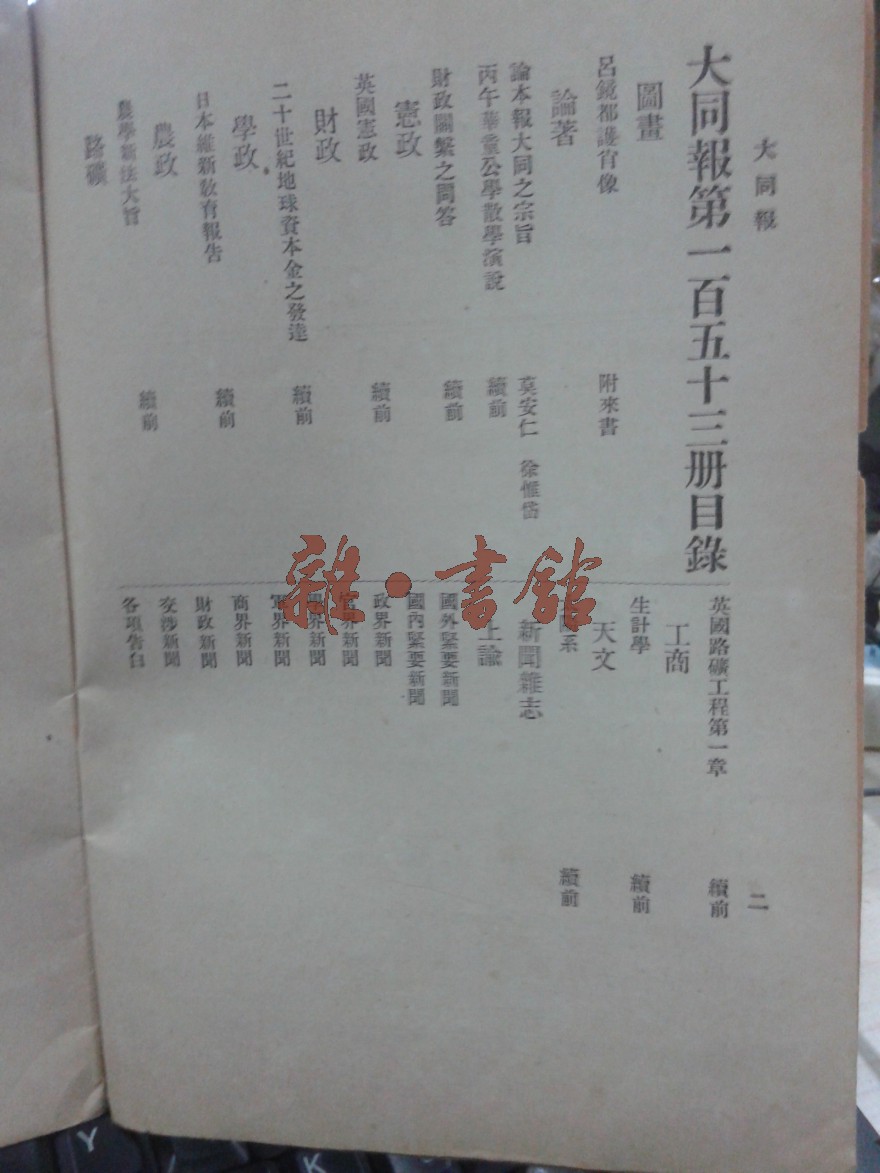 大同報
二
大同報第一百五十三册目錄
圖畫
呂鏡都護肖像 附來書
論著
論本報大同之宗旨 莫安仁 徐惟岱
丙午華童公學散學演說 續前
財政關繫之問答 續前
憲政
英國憲政 續前
財政
二十世紀地球資本金之發達 續前
學政
日本維新敎育報告 續前
農政
農學新法大旨 續前
路礦
英國路礦工程第一章 續前
工商
生計學 續前
天文
系 續前
新聞雜志
上諭
國外緊要新聞
國內緊要新聞
政界新聞
界新聞
學界新聞
軍界新聞
商界新聞
財政新聞
交涉新聞
各項告白
雜·書館
Y
K
L